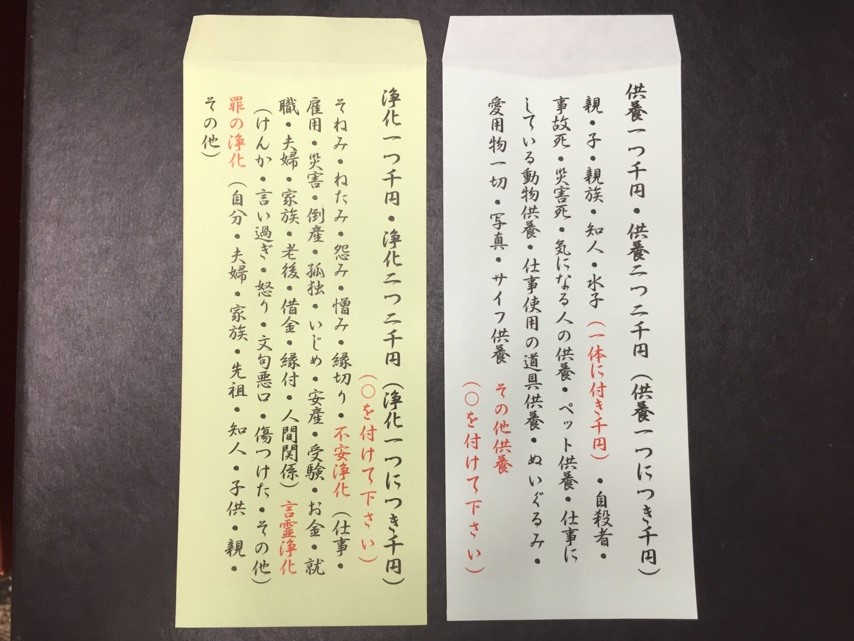 供養一つ千円・供養二つ二千円(供養一つにつき千円)
親・子・親族・知人・水子(一体に付き千円)・自殺者・
事故死・災害死・気になる人の供養・ペット供養・仕事に
している動物供養・仕事使用の道具供養・ぬいぐるみ・
愛用物一切・写真・サイフ供養 その他供養
(○を付けて下さい)
浄化一つ千円・浄化二つ二千円(浄化一つにつき千円)
(○を付けて下さい)
そねみ・ねたみ・怨み・憎み・縁切り・不安浄化(仕事・
雇用・災害・倒産・孤独・いじめ・安産・受験・お金・就
職・夫婦・家族・老後・借金・縁付・人間関係)言霊浄化
(けんか・言い過ぎ・怒り・文句悪口・傷つけた・その他)
罪の浄化(自分・夫婦・家族・先祖・知人・子供・親・
その他)